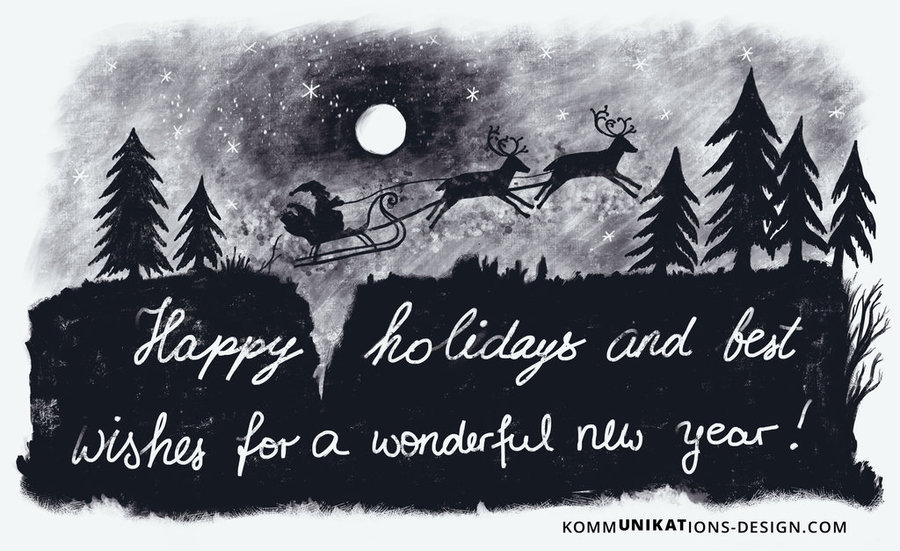 Happy holidays and best
wishes for a wonderful new year!
KOMMUNIKATIONS-DESIGN.COM